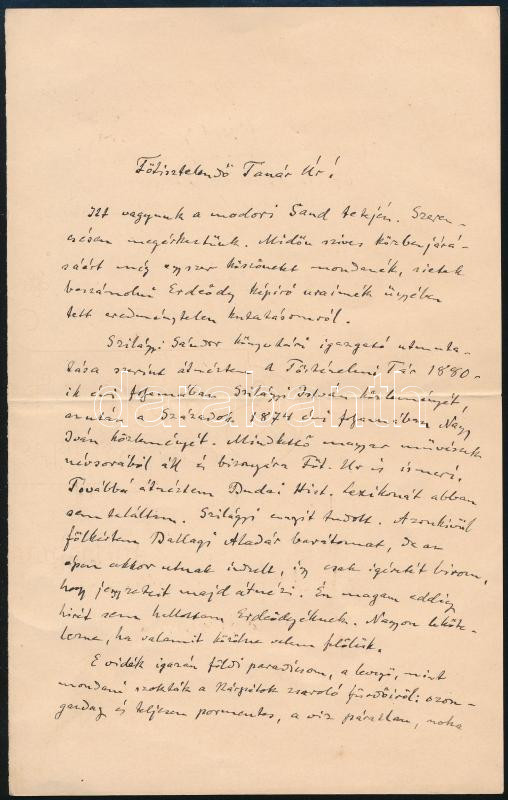 Főtisztelendő Tanár Úr!
Itt vagyunk a modori Sand tetején. Szeren-
csésen megérkeztünk. Midőn szives közbenjárá-
sáért még egyszer köszönetet mondanék, sietek
beszámolni Erdeődy képiró uraimék ügyében
tett eredménytelen kutatásomról.
Szilágyi Sándor könyvtári igazgató utmuta-
tása szerint átnéztem a Történelmi Tár 1880-
ik évi folyamában Szilágyi István közleményét,
azután a Századok 1874 évi folyamában Nagy
Iván közleményét. Mindkettő magyar művészek
névsorából áll és bizonyára Főt. Ur is ismeri.
Továbbá átnéztem Budai Hist. lexikonát abban
sem találtam. Szilágyi ennyit tudott. Azonkivül
fölkértem Ballagi Aladár barátomat, de az
épen akkor utnak indult, igy csak igéretét birom,
hogy jegyzeteit majd átnézi. Én magam eddig
hirét sem hallottam Erdeődyéknek. Nagyon lekötelezne, ha valamit közölne velem felőlük.
E vidék igazán földi paradicsom, a levegő, mint
mondani szokták a Kárpátok zsaroló fürdőiről: ozon-
gazdag és teljesen pormentes, a viz páratlan, noha
darabanth